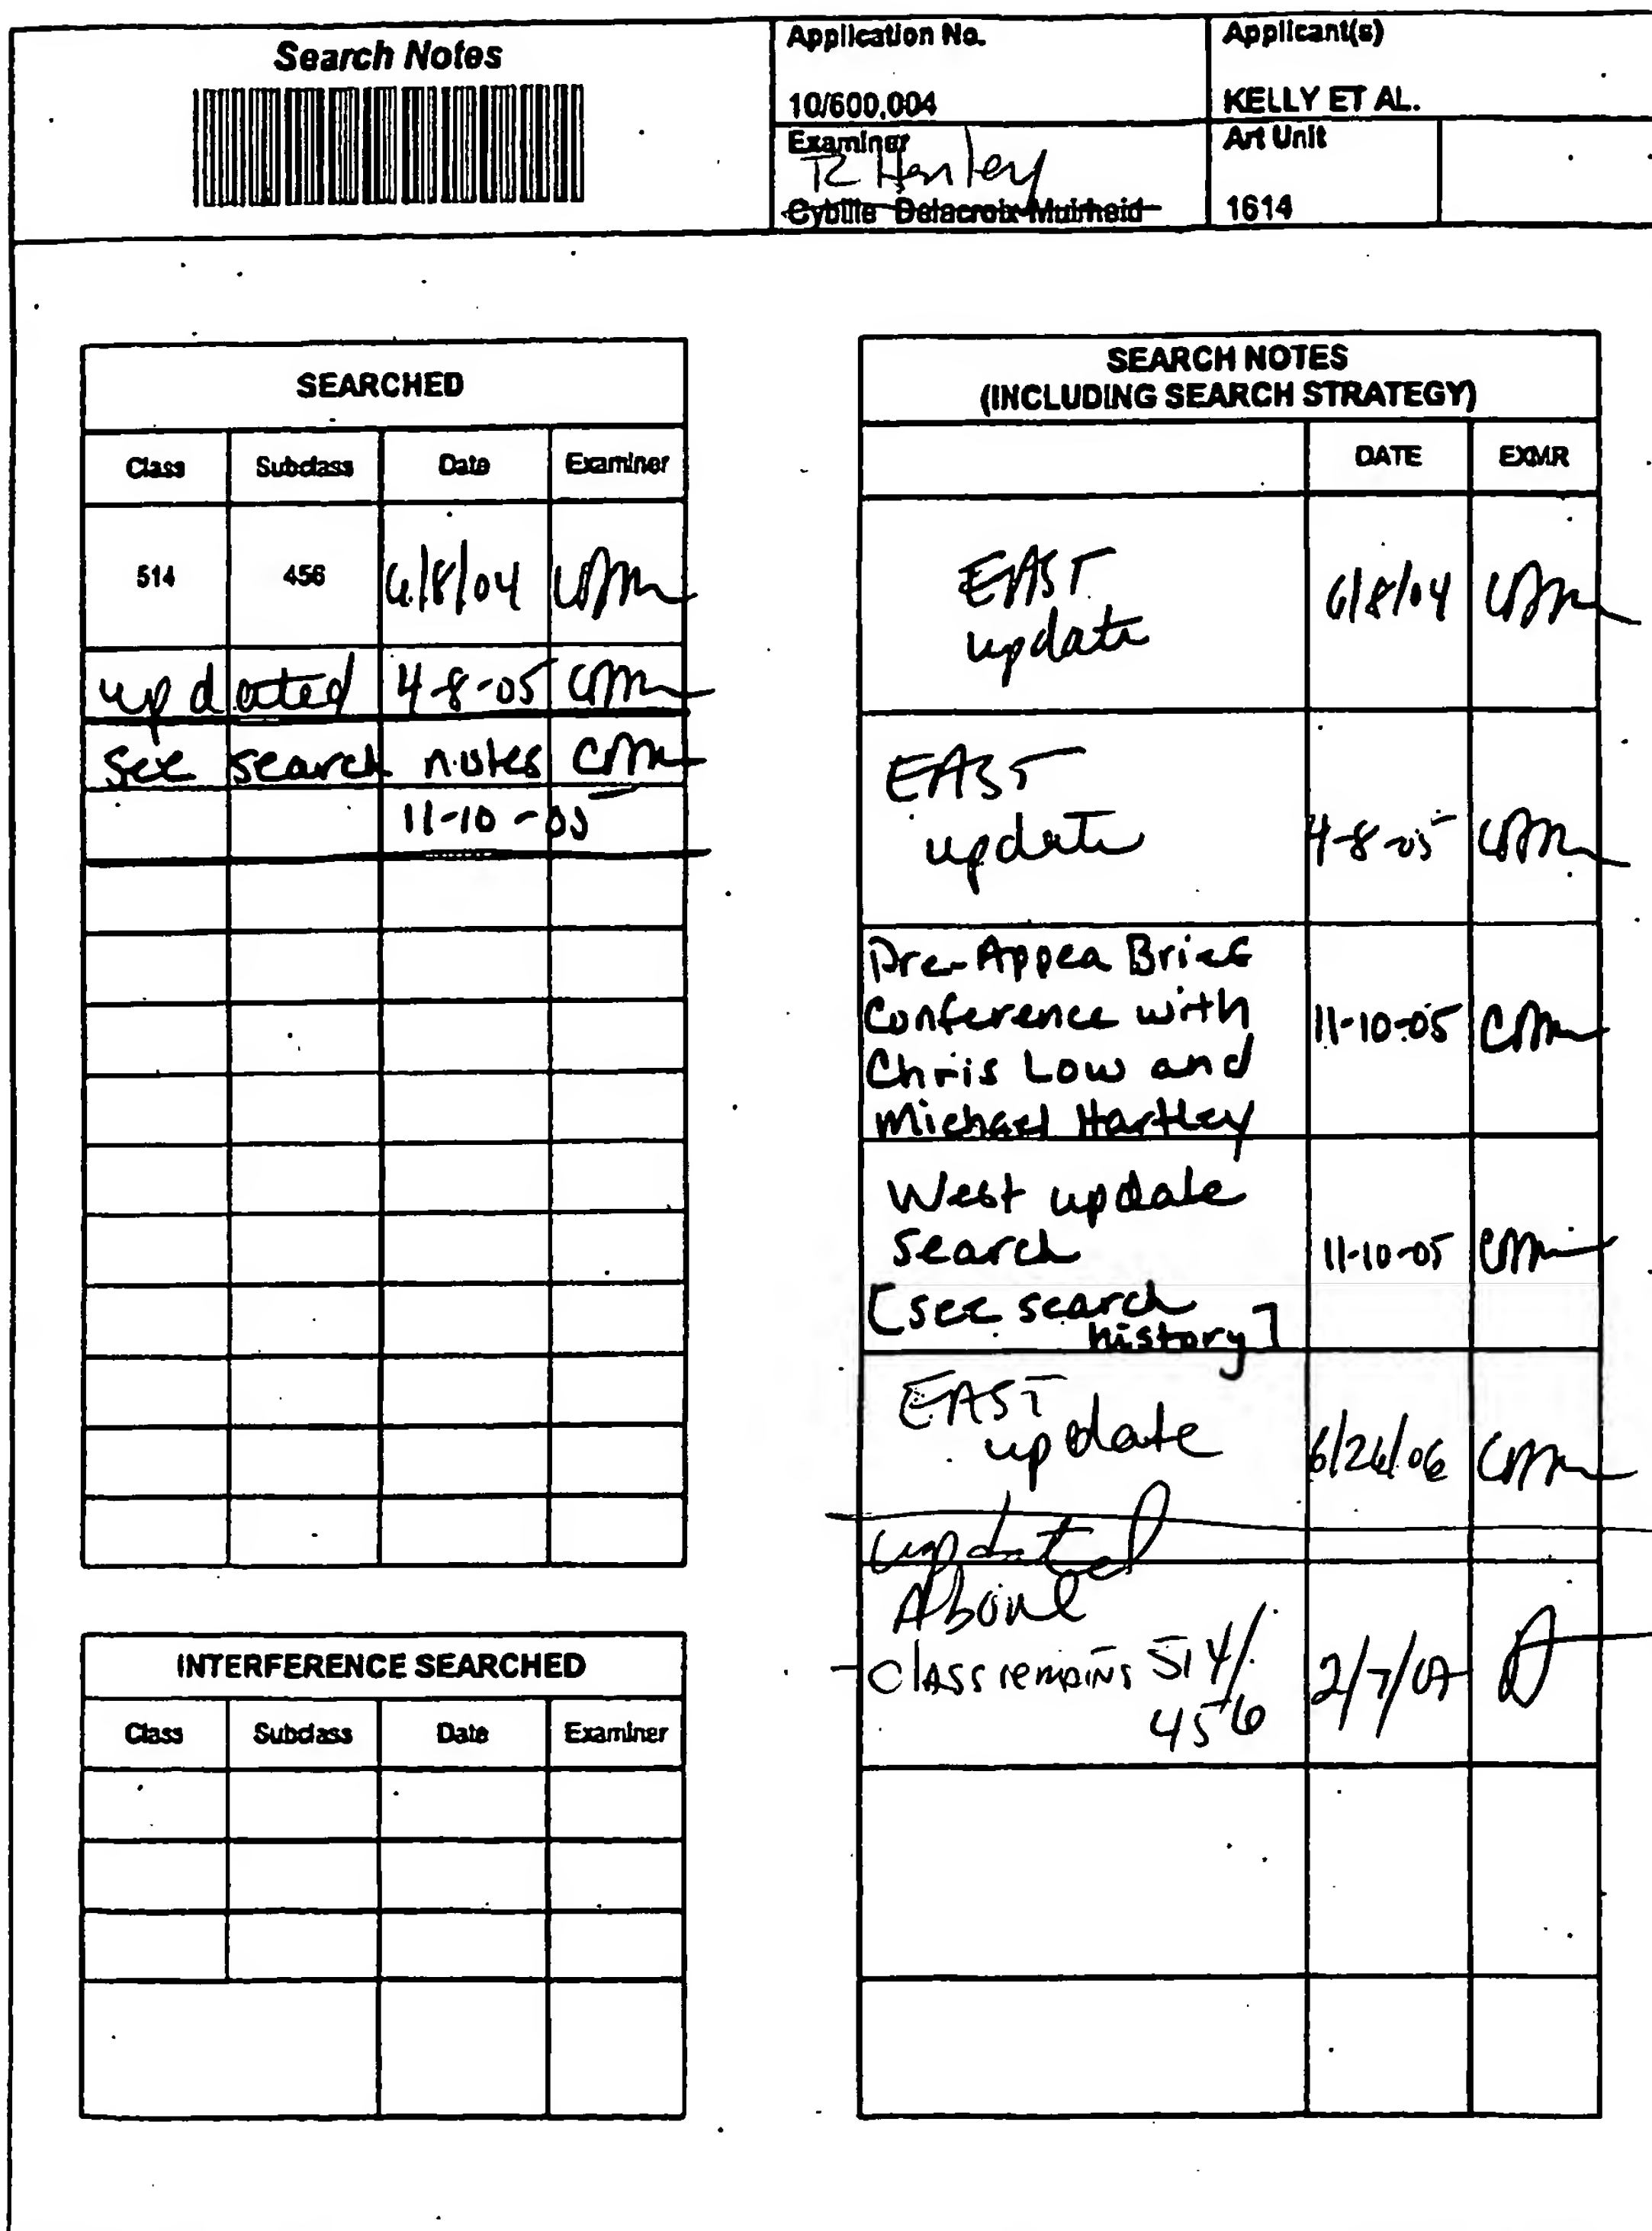 Search Notes
Application No.
Applicant(s)
10/600,004
KELLY ET AL.
Examiner
Art Unit
R Henley
Cybille Delacroix-Muirheid
1614
SEARCHED
Class Subclass Date Examiner
514 456 6/8/04 CDM
updated 4-8-05 CDM
see search notes CDM
11-10-05
INTERFERENCE SEARCHED
Class Subclass Date Examiner
SEARCH NOTES
(INCLUDING SEARCH STRATEGY)
DATE EXMR
EAST
update 6/8/04 CDM
EAST
update 4-8-05 CDM
Pre-Appea Brief
Conference with
Chris Low and
Michael Hartley 11-10-05 CDM
West update
search 11-10-05 CDM
[see search
history]
EAST
update 6/26/06 CDM
updated
Above
Class remains 514/
456 2/7/07